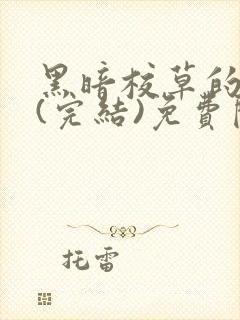 黑暗校草的
(完結)免費
托雷